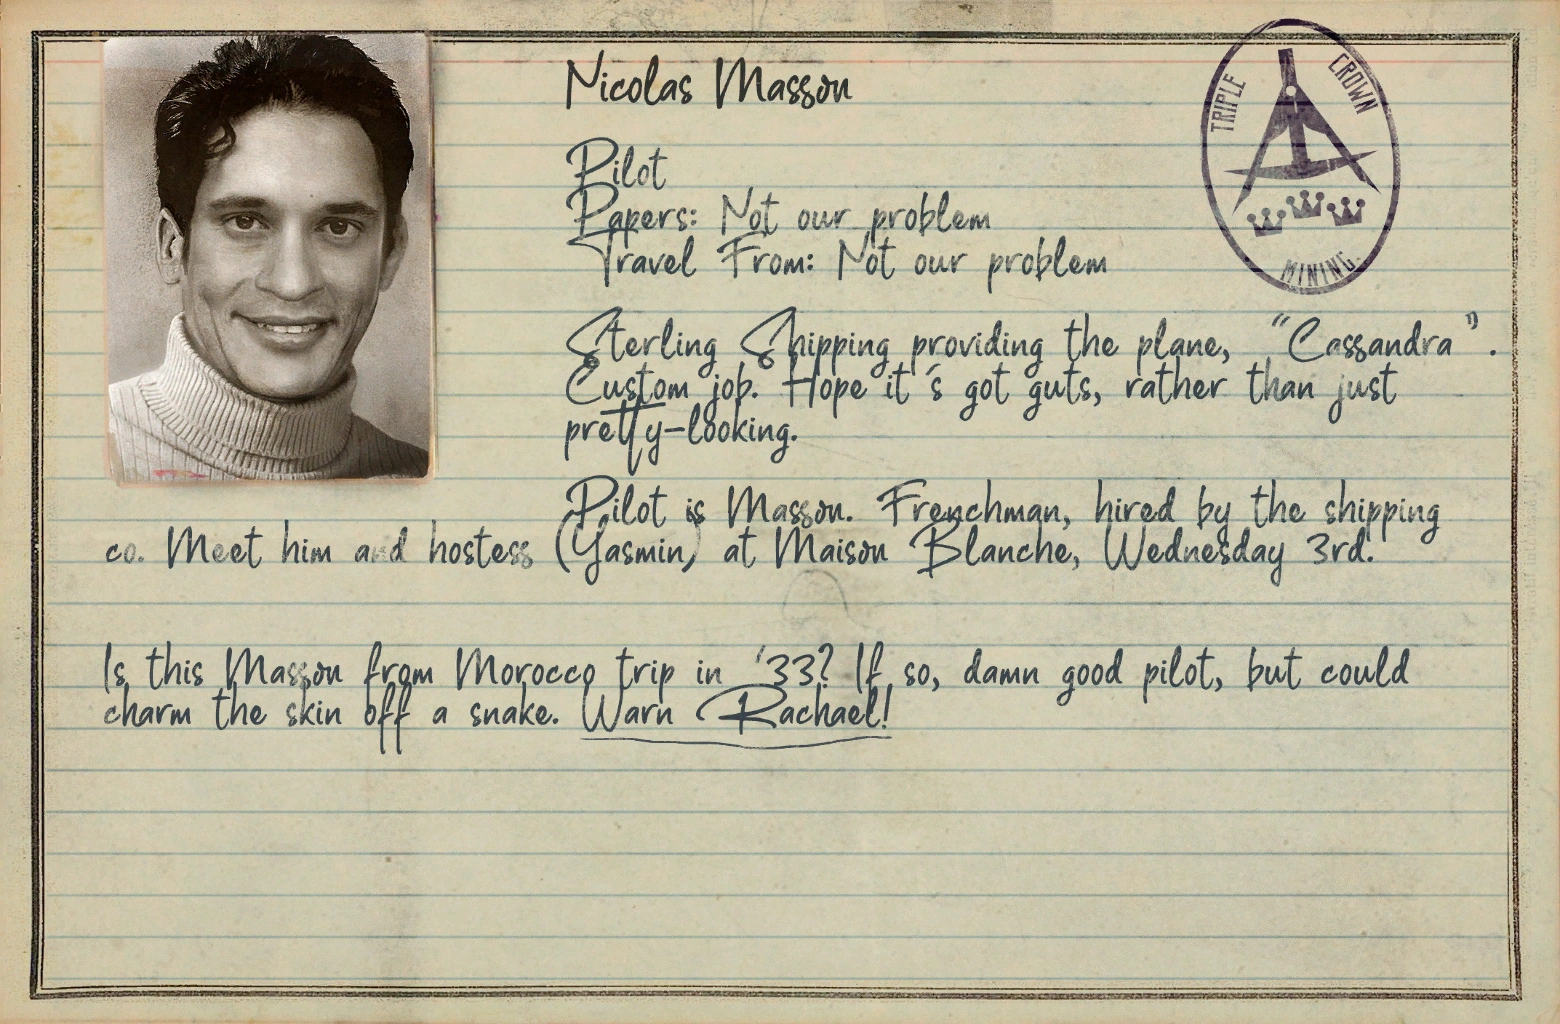 Nicolas Masson
TRIPLE CROWN
MINING
Pilot
Papers: Not our problem
Travel From: Not our problem
Sterling Shipping providing the plane, “Cassandra”.
Custom job. Hope it's got guts, rather than just
pretty-looking.
Pilot is Masson. Frenchman, hired by the shipping
co. Meet him and hostess (Yasmin) at Maison Blanche, Wednesday 3rd.
Is this Masson from Morocco trip in '33? If so, damn good pilot, but could
charm the skin off a snake. Warn Rachael!